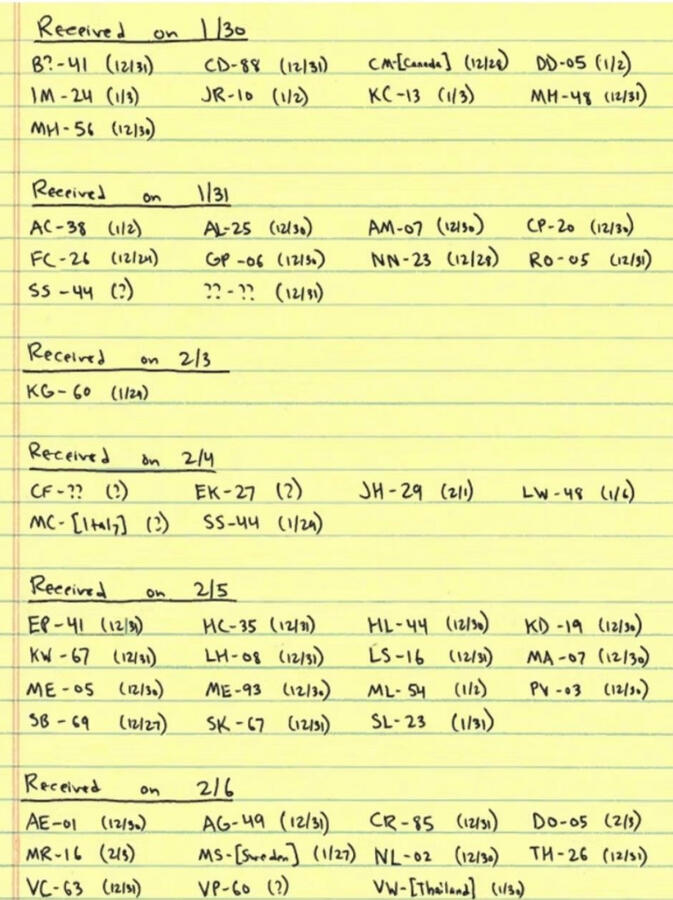 Received on 1/30
B?-41 (12/31) CD-88 (12/31) CM-[Canada] (12/28) DD-05 (1/2)
IM-24 (1/3) JR-10 (1/2) KC-13 (1/3) MH-48 (12/31)
MH-56 (12/30)
Received on 1/31
AC-38 (1/2) AL-25 (12/30) AM-07 (12/30) CP-20 (12/30)
FC-26 (12/29) GP-06 (12/30) NN-23 (12/28) RO-05 (12/31)
SS-44 (?) ??-?? (12/31)
Received on 2/3
KG-60 (1/29)
Received on 2/4
CF-?? (?) EK-27 (?) JH-29 (2/1) LW-48 (1/6)
MC-[Italy] (?) SS-44 (1/29)
Received on 2/5
EP-41 (12/31) HC-35 (12/31) HL-44 (12/30) KD-19 (12/30)
KW-67 (12/31) LH-08 (12/31) LS-16 (12/31) MA-07 (12/30)
ME-05 (12/30) ME-93 (12/30) ML-54 (1/2) PV-03 (12/30)
SB-69 (12/27) SK-67 (12/31) SL-23 (1/31)
Received on 2/6
AE-01 (12/30) AG-49 (12/31) CR-85 (12/31) DO-05 (2/3)
MR-16 (2/3) MS-[Sweden] (1/27) NL-02 (12/30) TH-26 (12/31)
VC-63 (12/31) VP-60 (?) VW-[Thailand] (1/30)